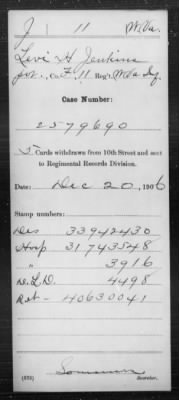 J 11 W.Va.
Levi H Jenkins
Co. F, 11 Reg't, W Va Inf.
Case Number:
2579690
5 Cards withdrawn from 10th Street and sent
to Regimental Records Division.
Date: Dec 20, 1906
Stamp numbers:
Des 33942430
Hosp 31.743548
" 3916
4498
Ret - 40630041
Searcher.